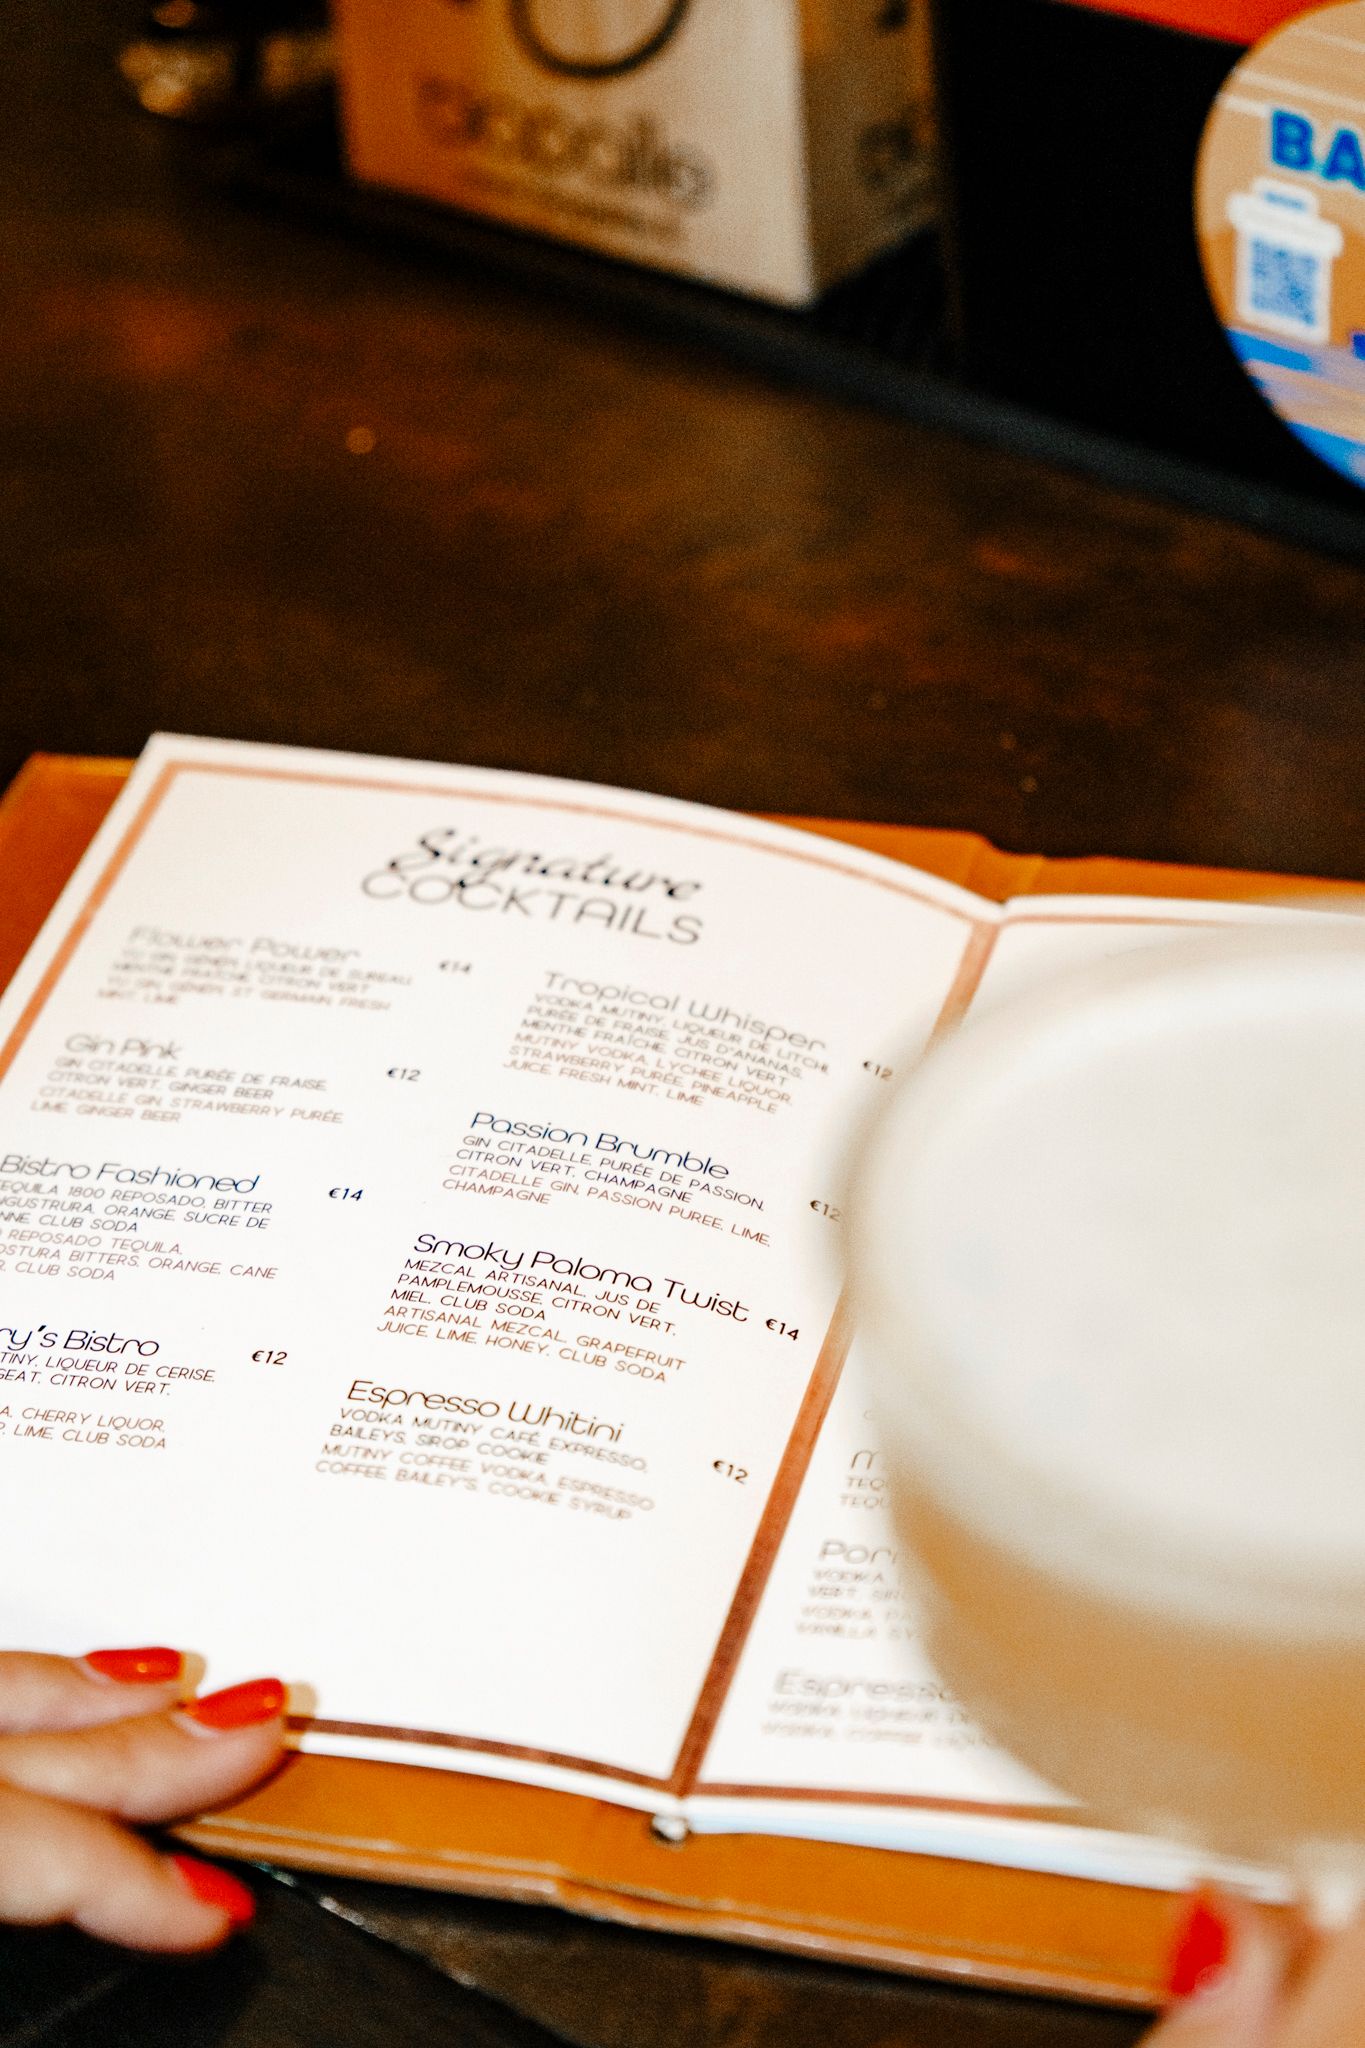 BA
Signature
COCKTAILS
Flower Power
€14
YU GIN, GÉNÉPI, LIQUEUR DE SUREAU,
MENTHE FRAÎCHE, CITRON VERT
YU GIN, GÉNÉPI, ST GERMAIN, FRESH
MINT, LIME
Gin Pink
€12
GIN CITADELLE, PURÉE DE FRAISE,
CITRON VERT, GINGER BEER
CITADELLE GIN, STRAWBERRY PURÉE,
LIME, GINGER BEER
Bistro Fashioned
€14
TEQUILA 1800 REPOSADO, BITTER
ORANGE, SUCRE DE
CLUB SODA
REPOSADO TEQUILA,
BITTERS, ORANGE, CANE
CLUB SODA
Bistro
€12
LIQUEUR DE CERISE,
CITRON VERT,
CHERRY LIQUOR,
LIME, CLUB SODA
Tropical Whisper
€12
VODKA MUTINY, LIQUEUR DE LITCHI,
PURÉE DE FRAISE, JUS D'ANANAS,
MENTHE FRAÎCHE, CITRON VERT
MUTINY VODKA, LYCHEE LIQUOR,
STRAWBERRY PURÉE, PINEAPPLE
JUICE, FRESH MINT, LIME
Passion Brumble
€12
GIN CITADELLE, PURÉE DE PASSION,
CITRON VERT, CHAMPAGNE
CITADELLE GIN, PASSION PUREE, LIME,
CHAMPAGNE
Smoky Paloma Twist
€14
MEZCAL ARTISANAL, JUS DE
PAMPLEMOUSSE, CITRON VERT,
MIEL, CLUB SODA
ARTISANAL MEZCAL, GRAPEFRUIT
JUICE, LIME, HONEY, CLUB SODA
Espresso Whitini
€12
VODKA MUTINY CAFÉ, EXPRESSO,
BAILEYS, SIROP COOKIE
MUTINY COFFEE VODKA, ESPRESSO
COFFEE, BAILEY'S, COOKIE SYRUP
VODKA,
VERT,
VODKA,
VANILLA